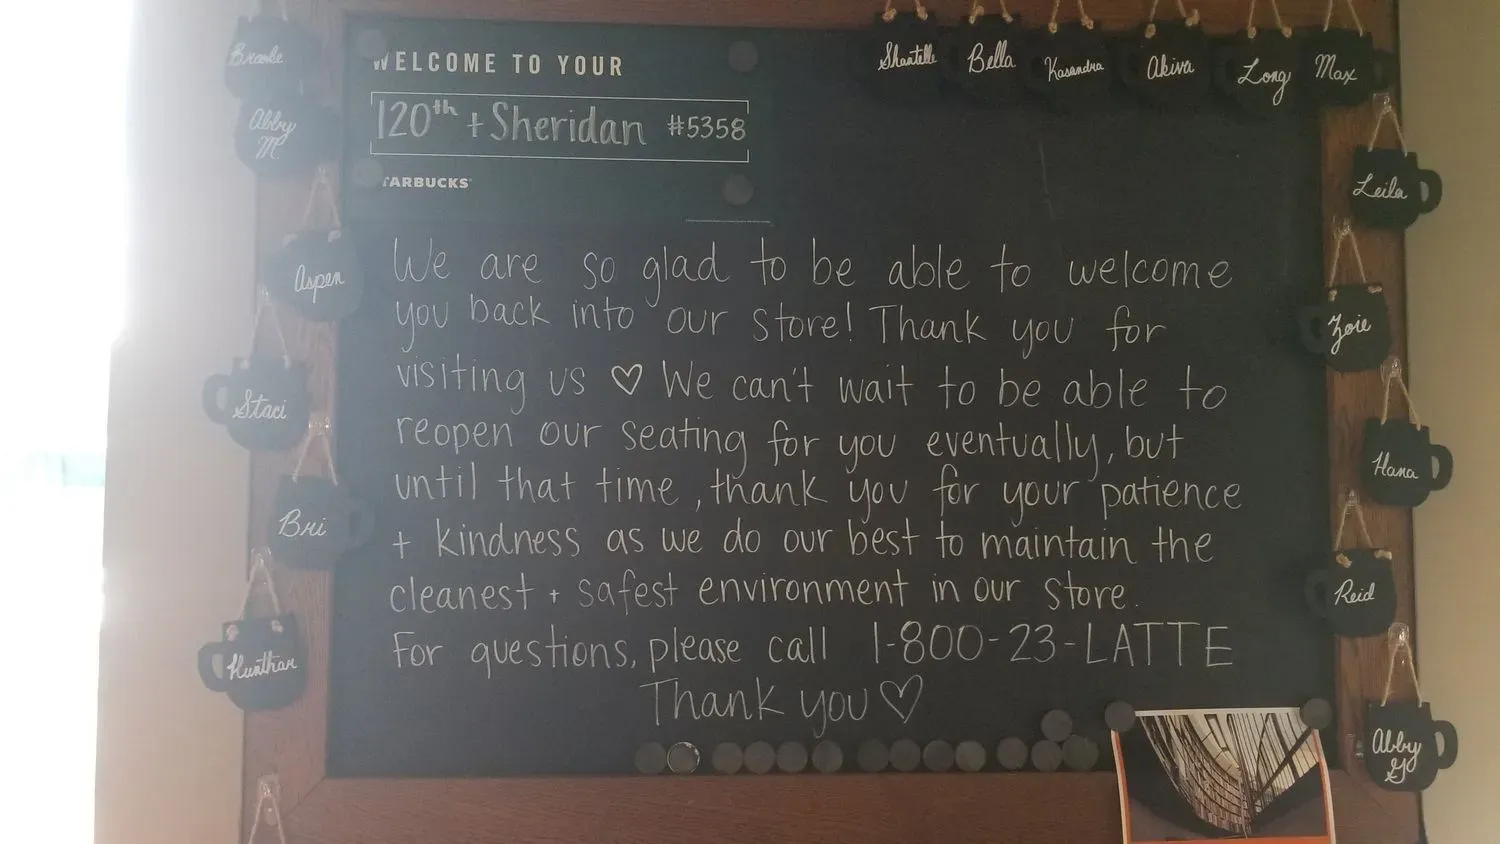 WELCOME TO YOUR
120th + Sheridan #5358
STARBUCKS
We are so glad to be able to welcome
you back into our store! Thank you for
visiting us ♡ We can't wait to be able to
reopen our seating for you eventually, but
until that time, thank you for your patience
+ kindness as we do our best to maintain the
cleanest + safest environment in our store.
For questions, please call 1-800-23-LATTE
Thank you ♡
Brooke
Abby
M
Aspen
Staci
Bri
Shantelle
Bella
Kasandra
Akiva
Long
Max
Leila
Zoie
Hana
Reid
Abby
G